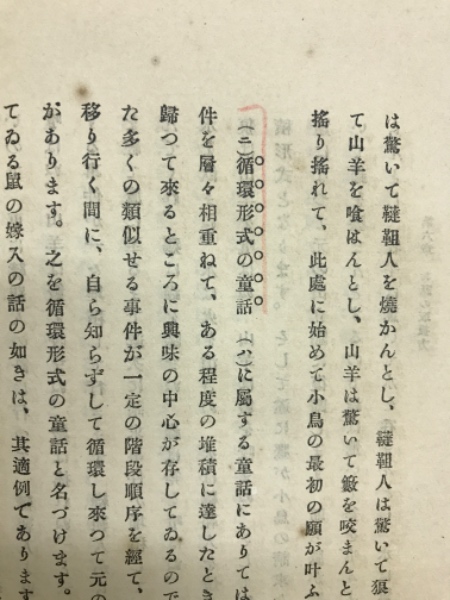 は驚いて韃靼人を燒かんとし、韃靼人は驚いて狼
て山羊を喰はんとし、山羊は驚いて籔を咬まんと
搖り搖れて、此處に始めて小鳥の最初の願が叶ふ
(ニ)循環形式の童話 (ハ)に屬する童話にありては
件を層々相重ねて、ある程度の堆積に達したとき
歸つて來るところに興味の中心が存してゐるので
た多くの類似せる事件が一定の階段順序を經て、
移り行く間に、自ら知らずして循環し來つて元の
があります。之を循環形式の童話と名づけます。
てゐる鼠の嫁入の話の如きは、其適例であります